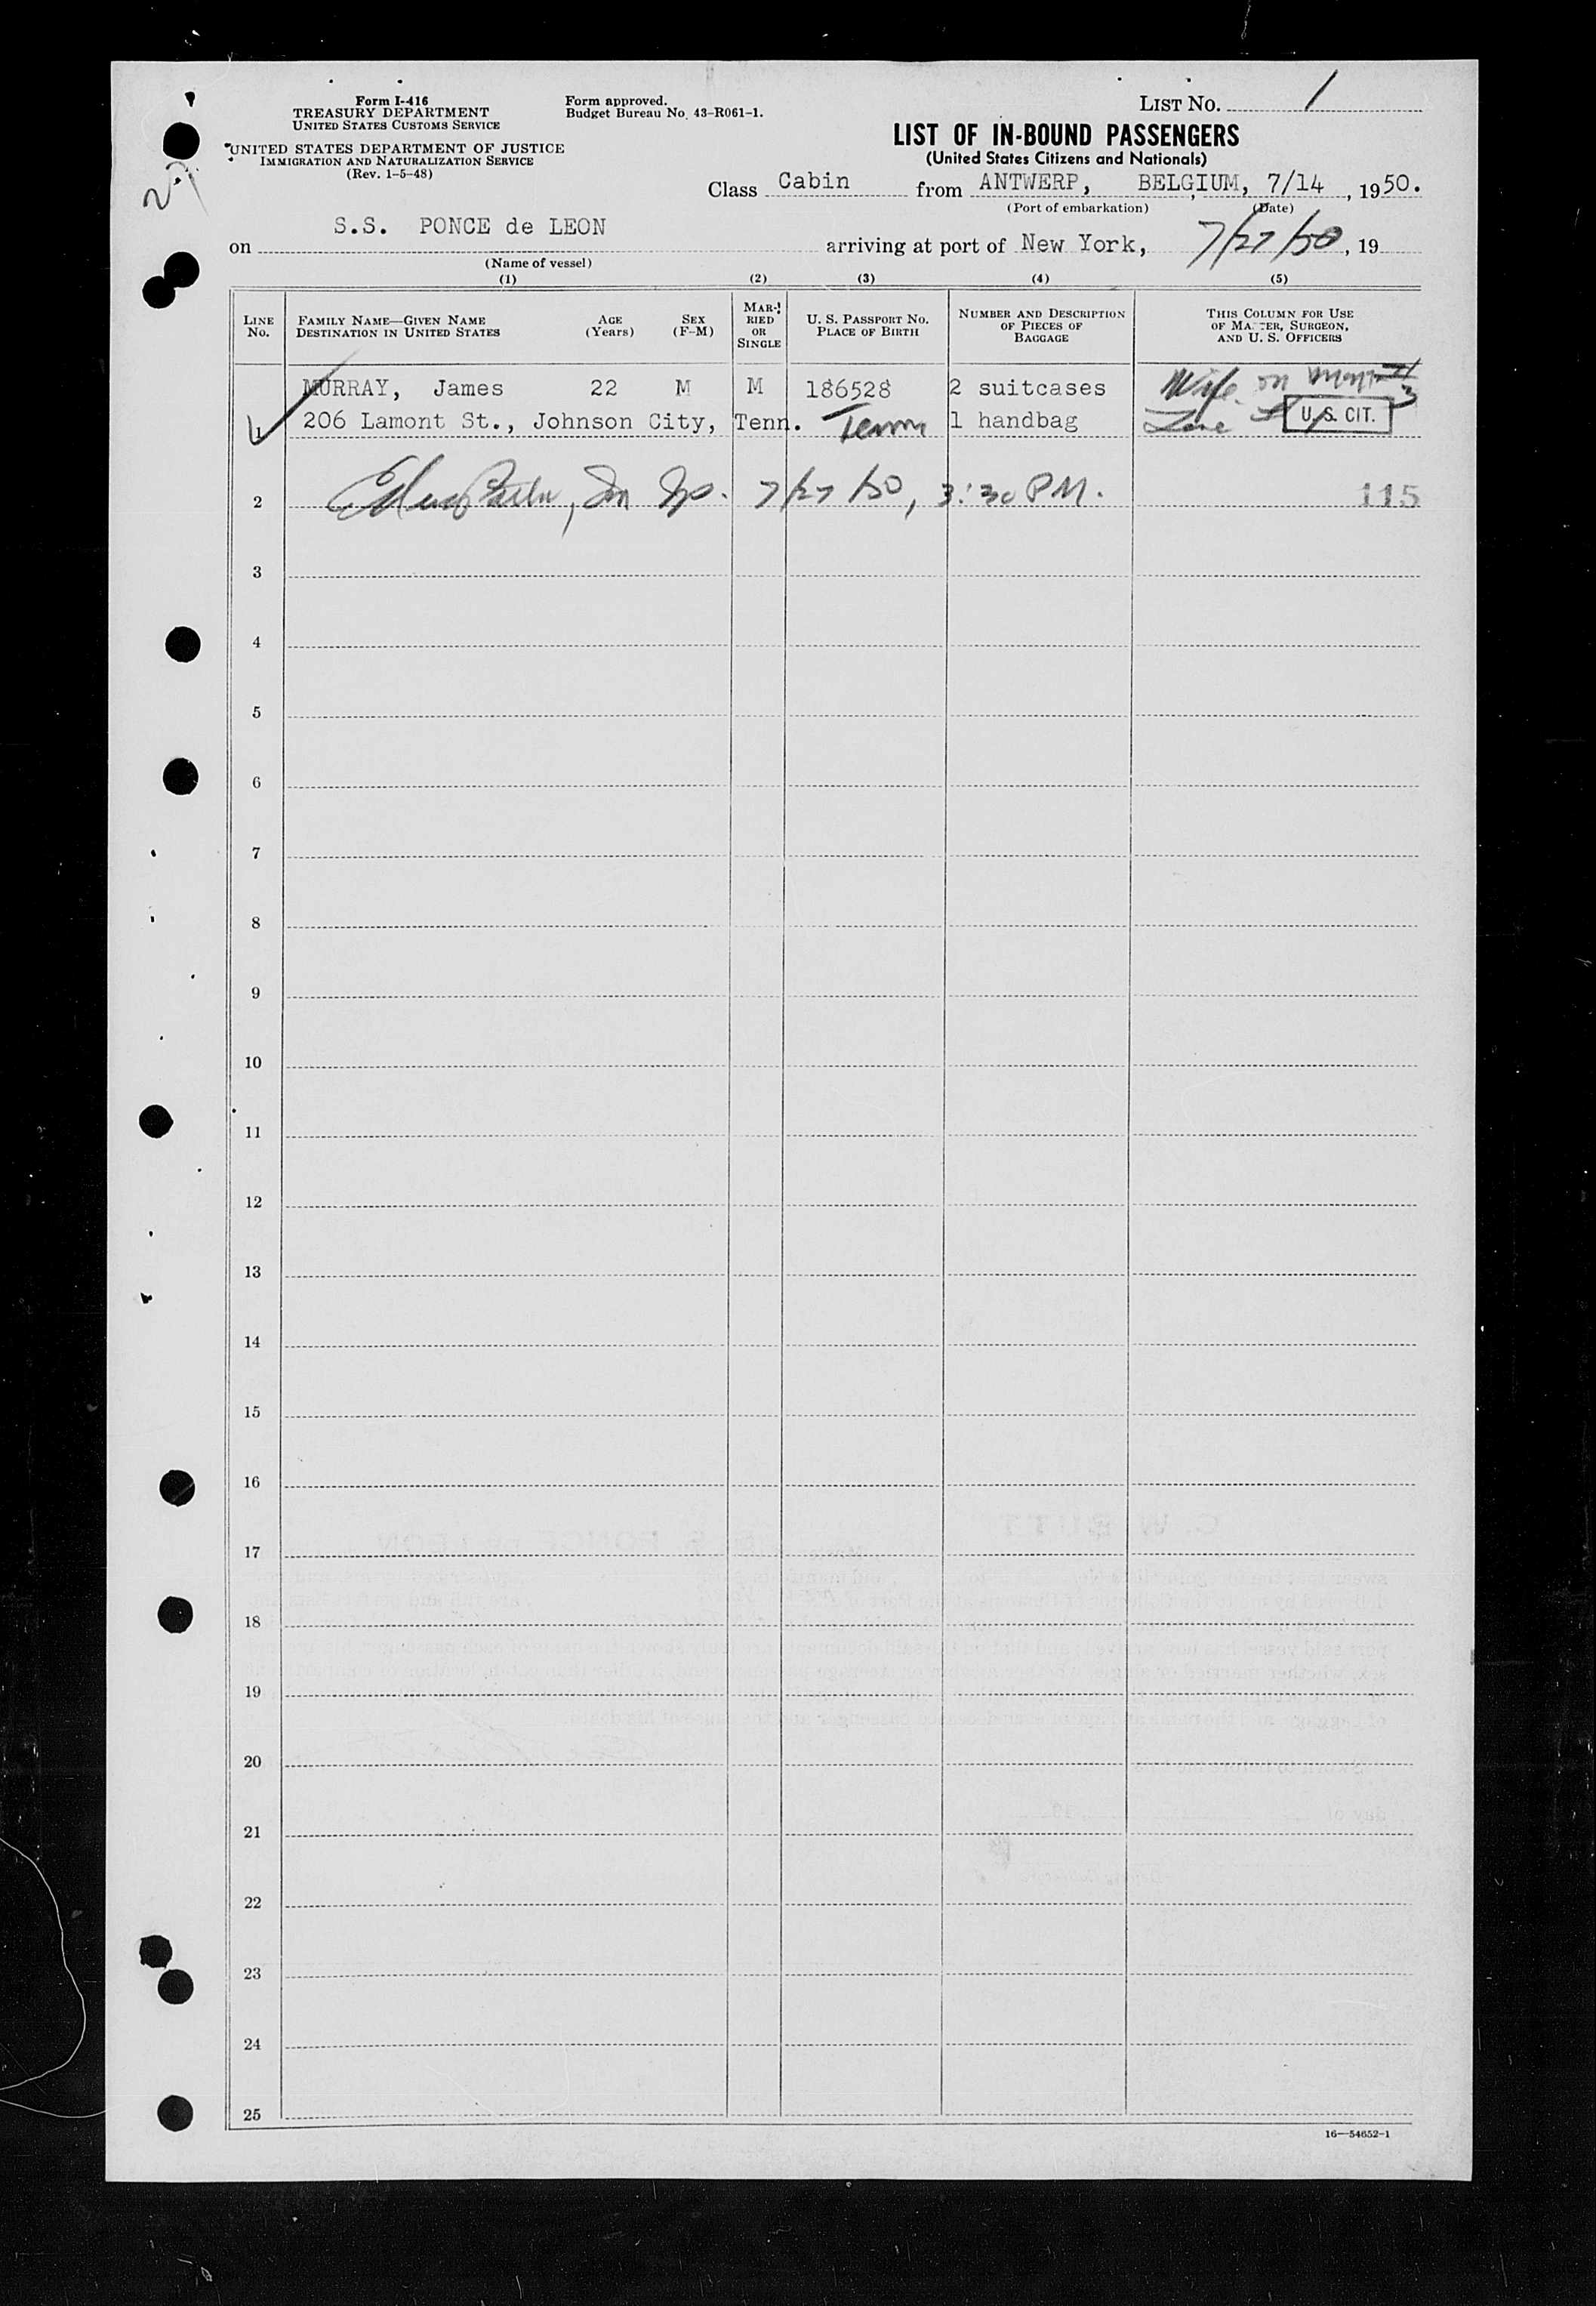 Form I-416
TREASURY DEPARTMENT
UNITED STATES CUSTOMS SERVICE
UNITED STATES DEPARTMENT OF JUSTICE
IMMIGRATION AND NATURALIZATION SERVICE
(Rev. 1-5-48)
Form approved.
Budget Bureau No. 43-R061-1.
LIST NO. 1
LIST OF IN-BOUND PASSENGERS
(United States Citizens and Nationals)
Class Cabin from ANTWERP, BELGIUM, 7/14, 1950.
(Port of embarkation) (Date)
on S.S. PONCE de LEON arriving at port of New York, 7/27/50, 19
(Name of vessel)
(1) (2) (3) (4) (5)
LINE No.
FAMILY NAME—GIVEN NAME
DESTINATION IN UNITED STATES
AGE (Years)
SEX (F-M)
MARRIED OR SINGLE
U. S. PASSPORT NO.
PLACE OF BIRTH
NUMBER AND DESCRIPTION OF PIECES OF BAGGAGE
THIS COLUMN FOR USE OF MASTER, SURGEON, AND U. S. OFFICERS
MURRAY, James 22 M M 186528 2 suitcases Wife on
1 206 Lamont St., Johnson City, Tenn. Tenn 1 handbag Line U. S. CIT.
2 7/27/50, 3:30 PM. 115
3
4
5
6
7
8
9
10
11
12
13
14
15
16
17
18
19
20
21
22
23
24
25
16—54652-1